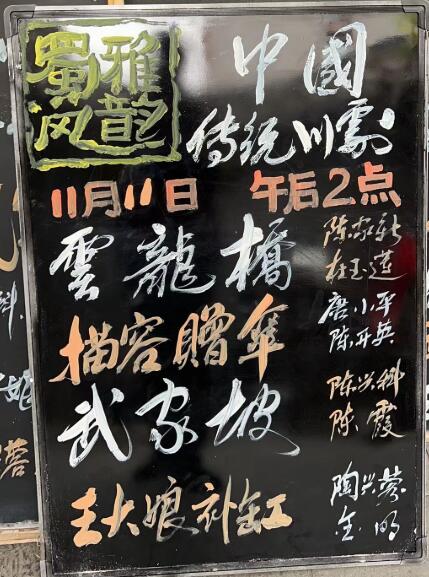 蜀雅
风韵
中國
传统川劇
11月11日 午后2点
雲龍橋
陈家新
玉莲
描容赠傘
唐小平
陈开英
武家坡
陈兴科
陈霞
王大娘补缸
陶兴蓉
金明